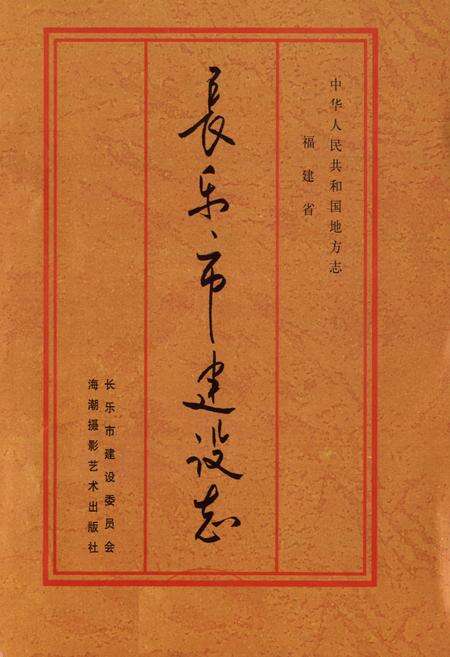 中华人民共和国地方志
福建省
長乐市建设志
长乐市建设委员会
海潮摄影艺术出版社